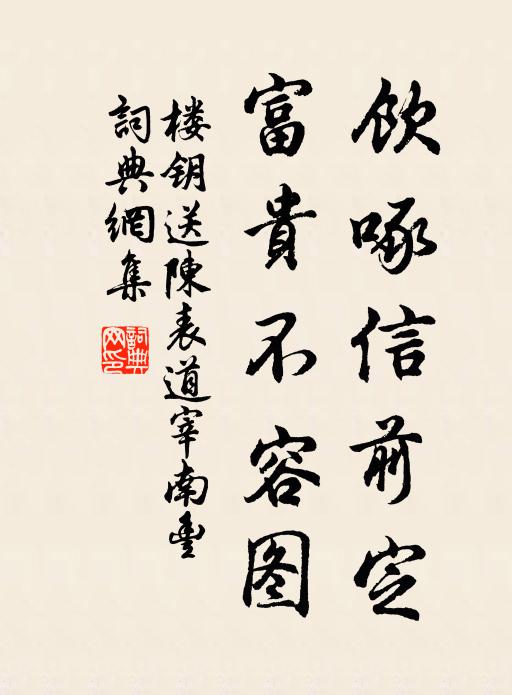 飲啄信前定
富貴不容图
楼钥送陳表道宰南豐
詞典網集
詞典网印